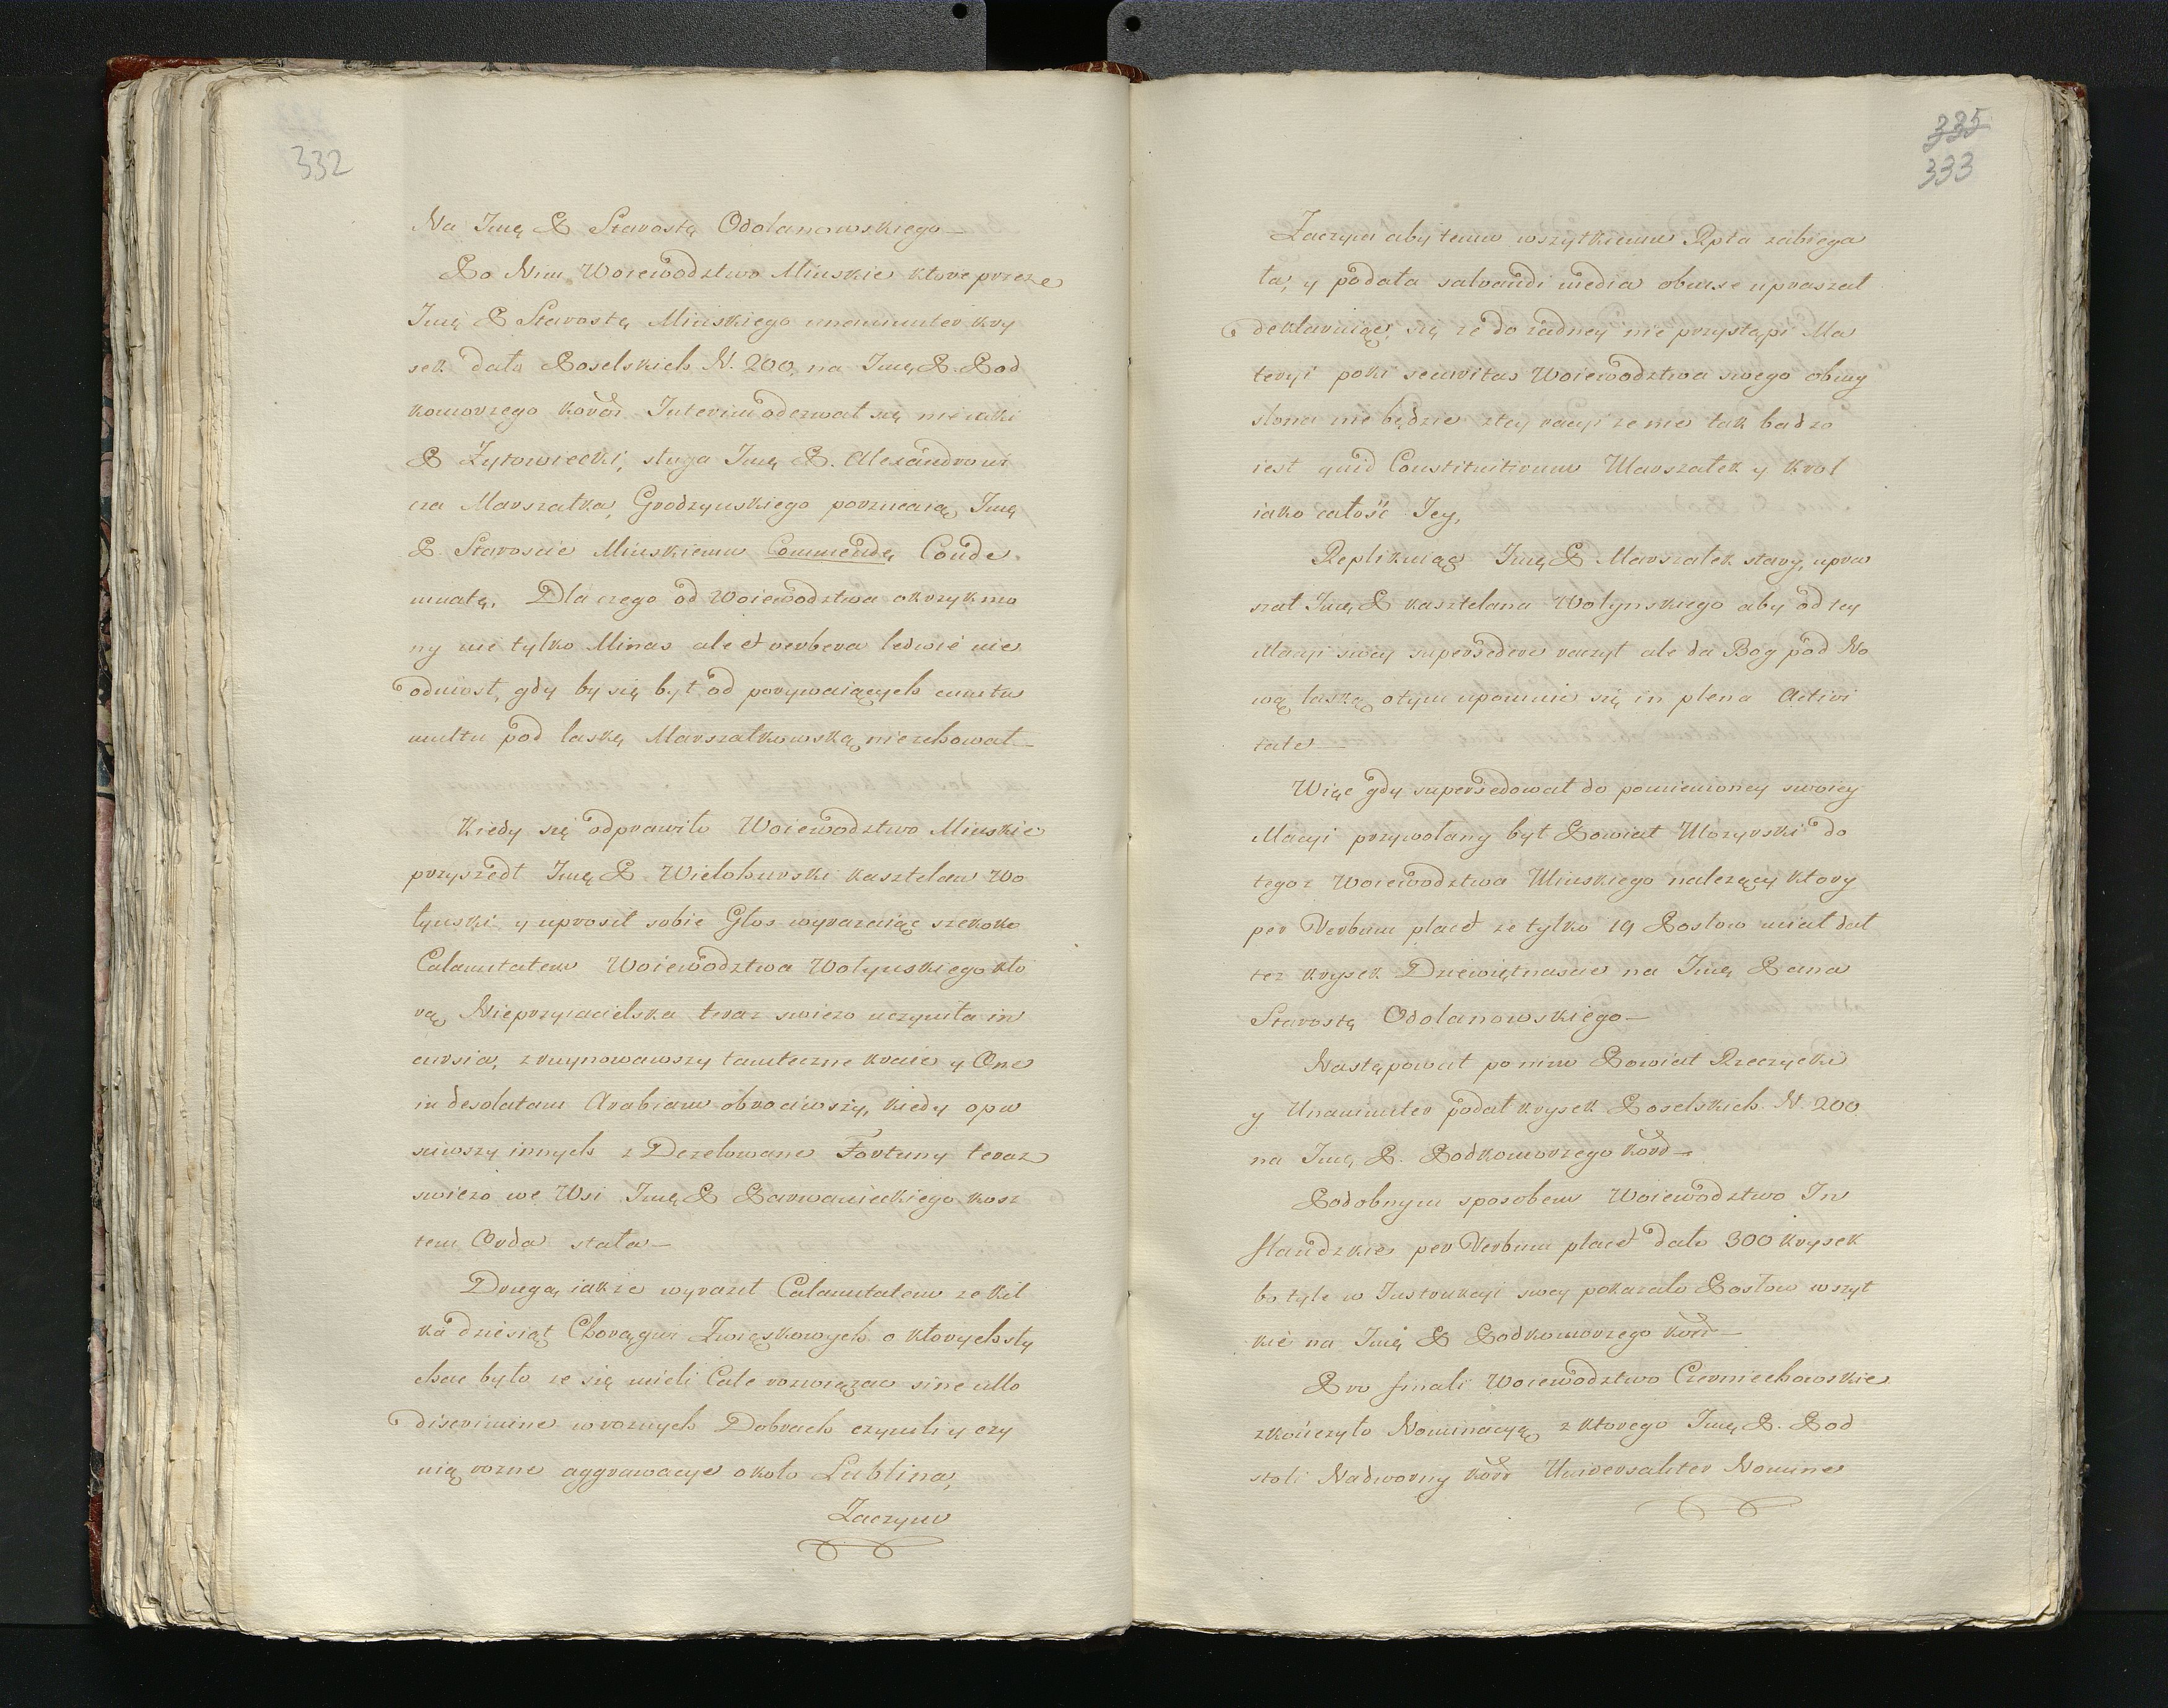 332
Na Imę P Starostę Odolanowskiego—
Po Nim Woiewodztwo Minskie ktore przez
Imę P Starostę Minskiego unanimiter kry
sek dało Poselskich N. 200, na Imę P. Pod
komorzego Kord. Interim oderwał się nieiaki
P Zytowiecki, sługa Imę P. Alexandrowi
cza Marszałka, Grodzynskiego porzucaią Imę
P. Staroscie Minskiemu Commendę Conde
mnatę. Dla czego od Woiewodztwa okrzykmo
ny nie tylko Minas ale et verbera ledwie nie
odniosł, gdy by się był od porywaiących cum tu
multu pod laskę Marszałkowską nie schował—
Kiedy się odprawiło Woiewodztwo Minskie
przyszedł Imę P. Wielohurski kasztelan Wo
łynski y uprosił sobie Głos wyrazaiąc szeroko
Calamitatem Woiewodztwa Wołynskiego kto
rą Nieprzyiacielska teraz swiezo uczyniła in
cursia, zruynowawszy tameczne kraie y One
in desolatam Arabiam obrociwszy, kiedy opu
sciwszy innych z Dezelowane Fortuny teraz
swiezo we Wsi Imę P Parwanieckiego kosz
tem Orda stała—
Drugą iakze wyraził Calamitatem ze kil
ka dziesiąt Chorągwi Zwiąskowych o ktorych sły
chac było ze się mieli Cale rozwiązac sine ullo
discrimine w roznych Dobrach czynili y czy
nią rozne aggrawacye około Lublina,
Zaczym
335
333
Zaczym aby temu wszytkiemu Rpta zabiega
ła, y podała salvandi media obnixe upraszał
deklaruiąc, się ze do iadney nie przystąpi Ma
teryi poki securitas Woiewodztwa swego obmy
slona nie będzie z tey racyi ze nie tak badzo
iest quid Constituitivum Marszałek y Krol
iako całość Iey,
Replikuiąc Imę P Marszałek stary, upra
szał Imę P kasztelana Wołynskiego aby od tey
Macyi swey supersedere raczył ale da Bog pod No
wą laską o tym upomnie się in plena Activi
tate—
Więc gdy supersedował do pomienioney swoiey
Macyi przywołany był Powiat Mozyrski do
tegoz Woiewodztwa Minskiego nalezący ktory
per Verbum placet ze tylko 19 Posłow miał dał
tez krysek Dziewiętnascie na Imę Pana
Starostę Odolanowskiego—
Następował po nim Powiat Rzeczycki
y Unanimiter podał krysek Poselskich. N. 200
na Imę P. Podkomorzego Kord—
Podobnym sposobem Woiewodztwo In
flandzkie per Verbum placet dało 300 krysek
bo tyle w Instrukcyi swey pokazało Posłow wszyt
kie na Imę P Podkomorzego Kord—
Pro finali Woiewodztwo Czerniechowskie
zkończyło Nominacyą z ktorego Imę P. Pod
stoli Nadworny Kord Universaliter Nomine